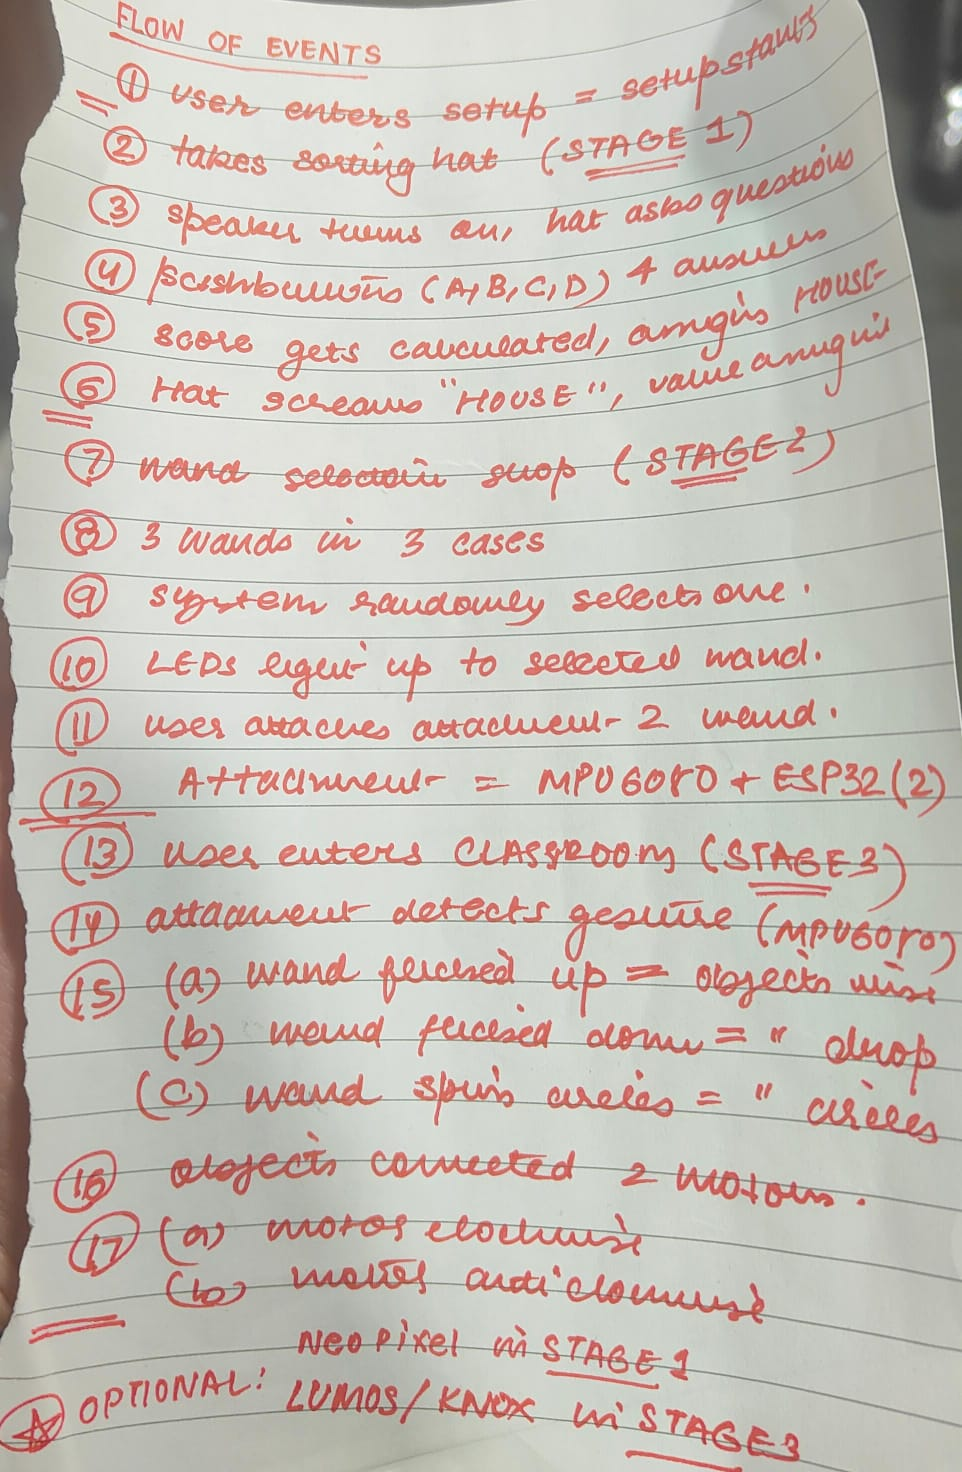 FLOW OF EVENTS
① user enters setup = setup starts
② takes sorting hat (STAGE 1)
③ speaker turns on, hat asks questions
④ pushbuttons (A,B,C,D) 4 answers
⑤ score gets calculated, assigns HOUSE
⑥ Hat screams "HOUSE",
⑦ wand selection shop (STAGE 2)
⑧ 3 wands in 3 cases
⑨ system randomly selects one.
⑩ LEDs light up to selected wand.
⑪ user attaches attachment 2 wand.
⑫ Attachment = MPU6050 + ESP32(2)
⑬ user enters CLASSROOM (STAGE 3)
⑭ attachment detects gesture (MPU6050)
⑮ (a) wand flicked up = objects rise
(b) wand flicked down = " drop
(c) wand spins circles = " circles
⑯ objects connected 2 motors.
⑰ (a) motor clockwise
(b) motor anticlockwise
Neo Pixel in STAGE 1
☆ OPTIONAL: LUMOS/KNOX in STAGE 3